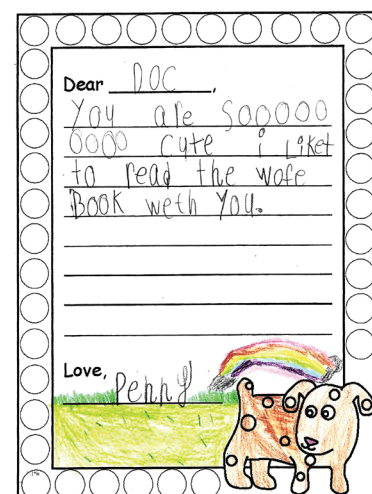 Dear DOC,
You are Sooooo
oooo cute i Liket
to read the wofe
BOOK weth You.
Love,
Penny